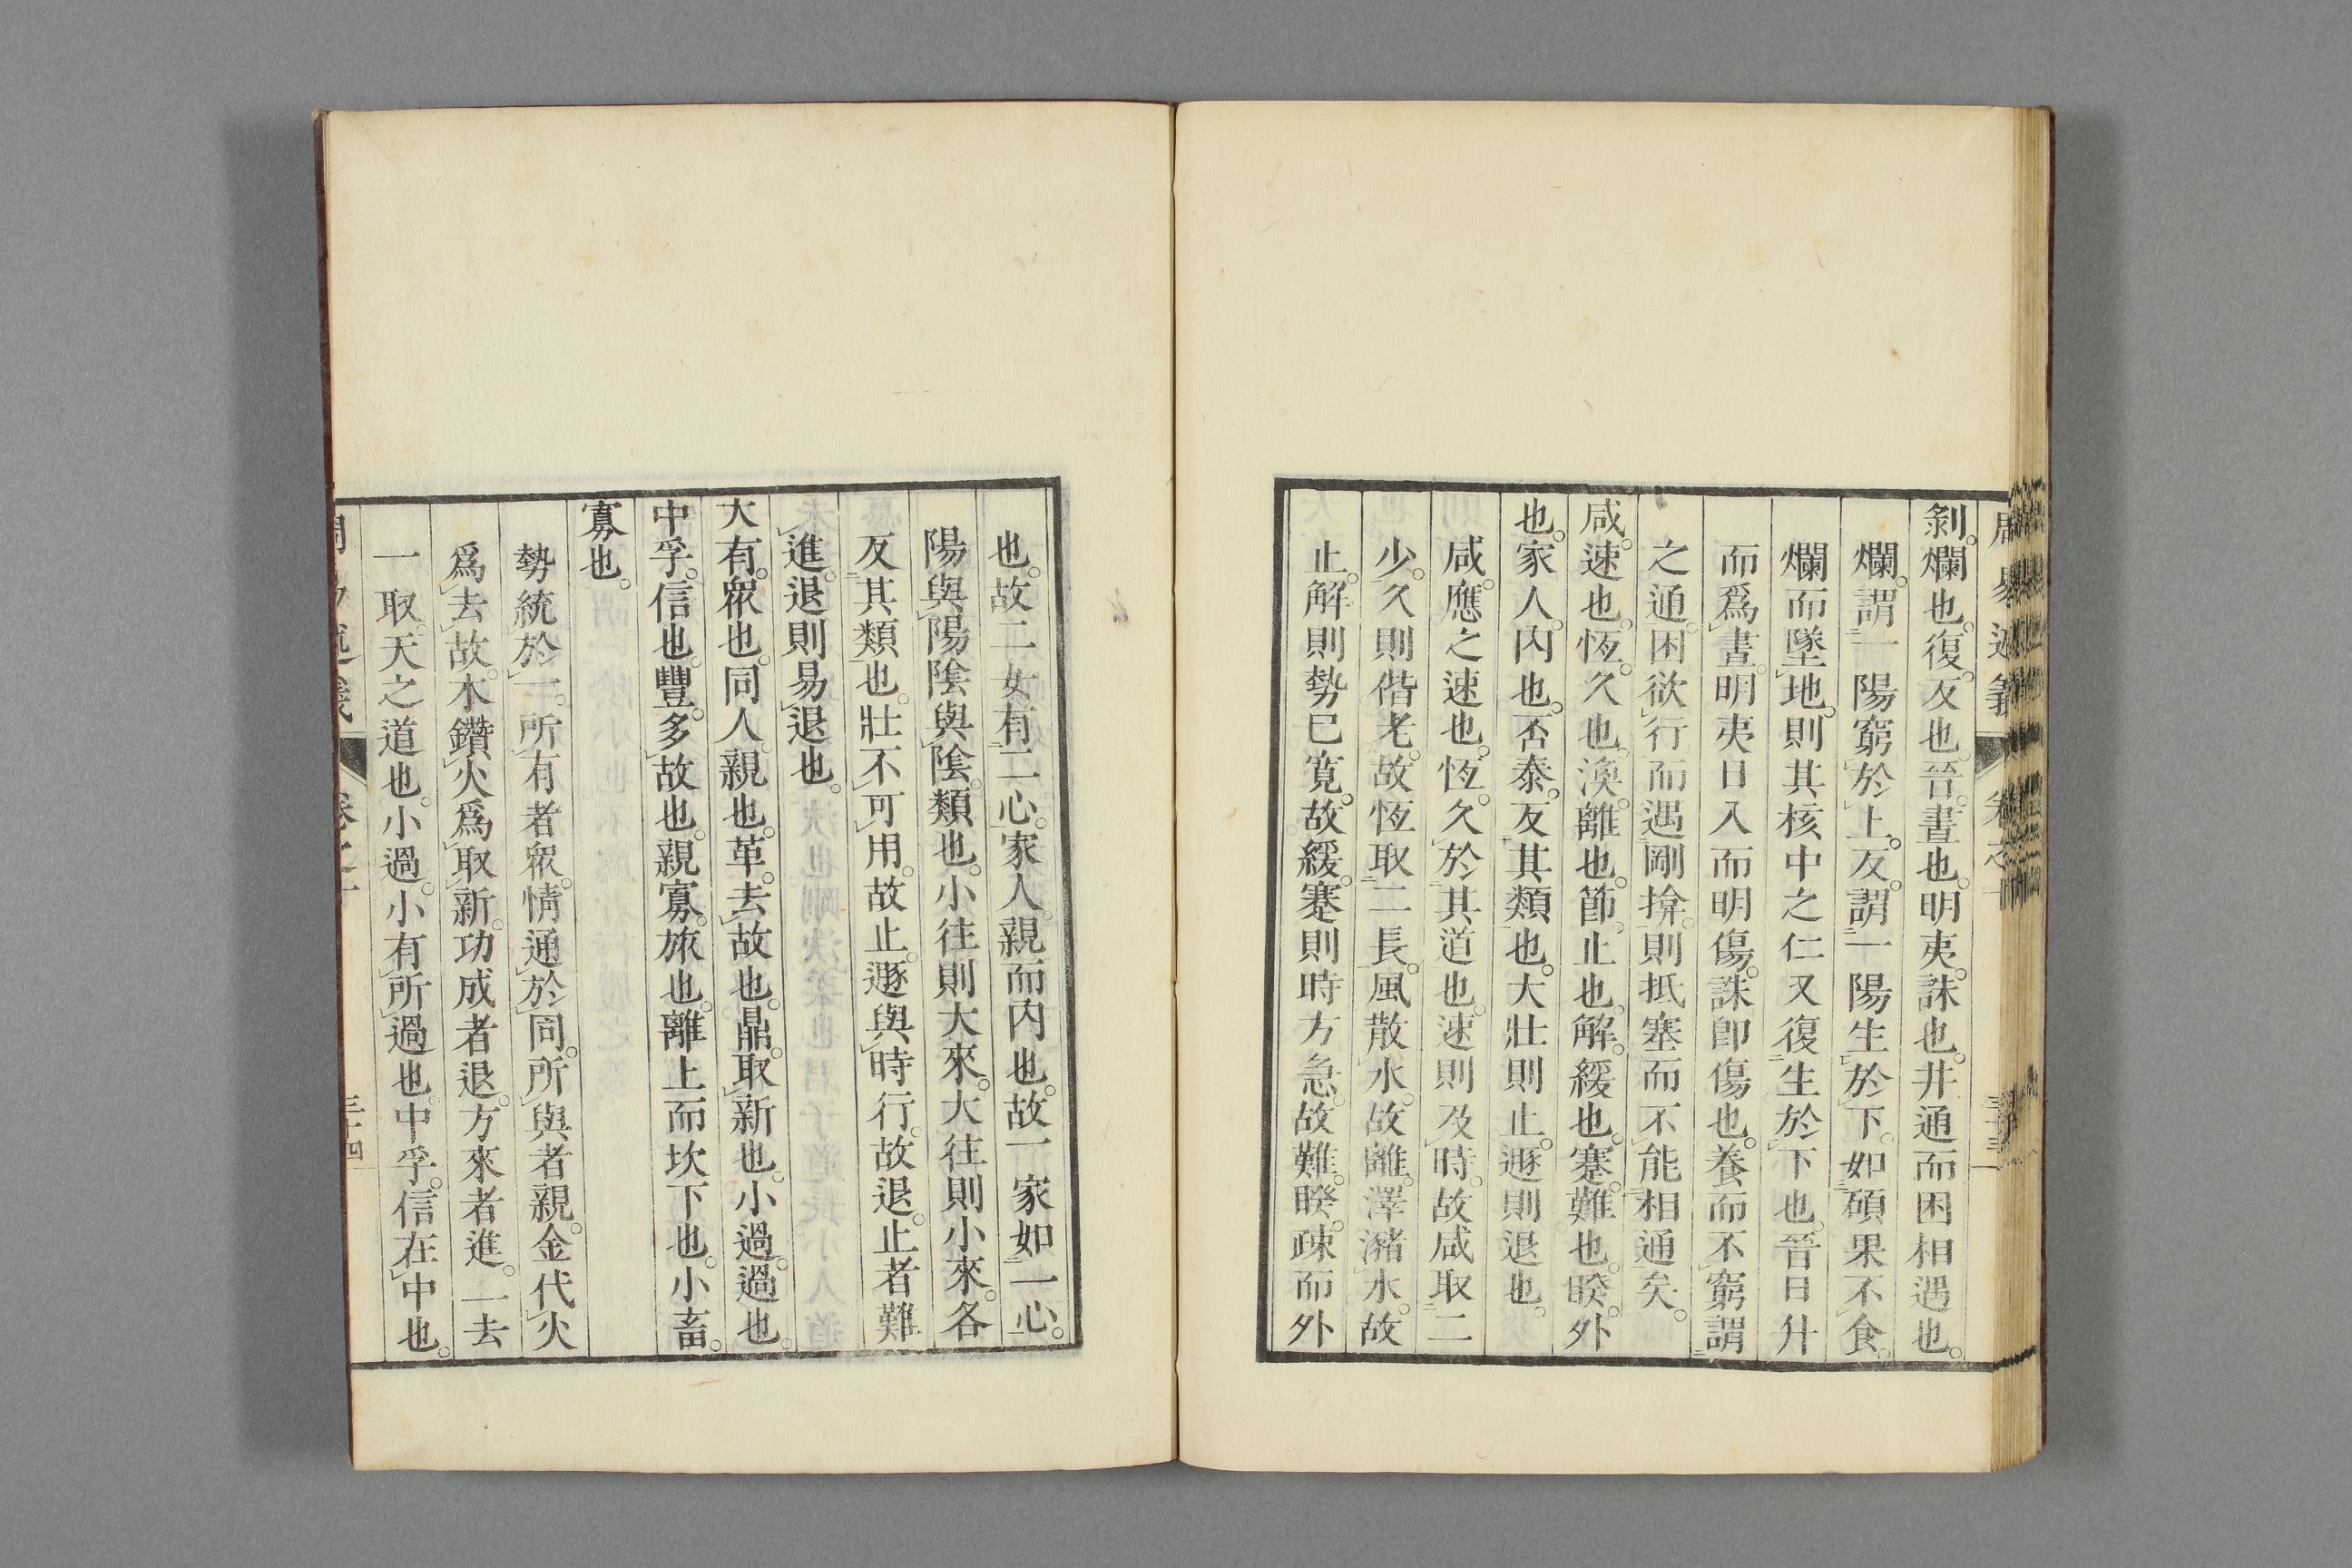 剝。爛也。復。反也。晉。晝也。明夷。誅也。井通而困相遇也。
爛。謂一陽窮於上。反。謂一陽生於下。如碩果不食。
爛而墜地。則其核中之仁又復生於下也。晉日升
而爲晝。明夷日入而明傷。誅卽傷也。養而不窮謂
之通。困欲行而遇剛揜。則抵塞而不能相通矣。
咸。速也。恆。久也。渙。離也。節。止也。解。緩也。蹇。難也。睽。外
也。家人。内也。否泰。反其類也。大壯則止。遯則退也。
咸。應之速也。恆。久於其道也。速則及時。故咸取二
少。久則偕老。故恆取二長。風散水。故離。澤瀦水。故
止。解則勢已寬。故緩。蹇則時方急。故難。睽。疎而外
也。故二女有二心。家人。親而内也。故一家如一心。
陽與陽陰與陰。類也。小往則大來。大往則小來。各
反其類也。壯不可用。故止。遯與時行。故退。止者難
進。退則易退也。
大有。衆也。同人。親也。革。去故也。鼎。取新也。小過。過也。
中孚。信也。豐。多故也。親寡。旅也。離上而坎下也。小畜。
寡也。
勢統於一。所有者衆。情通於同。所與者親。金代火
爲去故。木鑽火爲取新。功成者退。方來者進。一去
一取。天之道也。小過。小有所過也。中孚。信在中也。
三十四